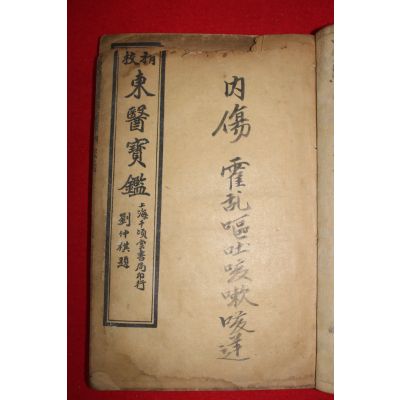 内傷 霍乱嘔吐咳嗽咳逆
東醫寶鑑
上海千頃堂書局印行
劉仲祺題